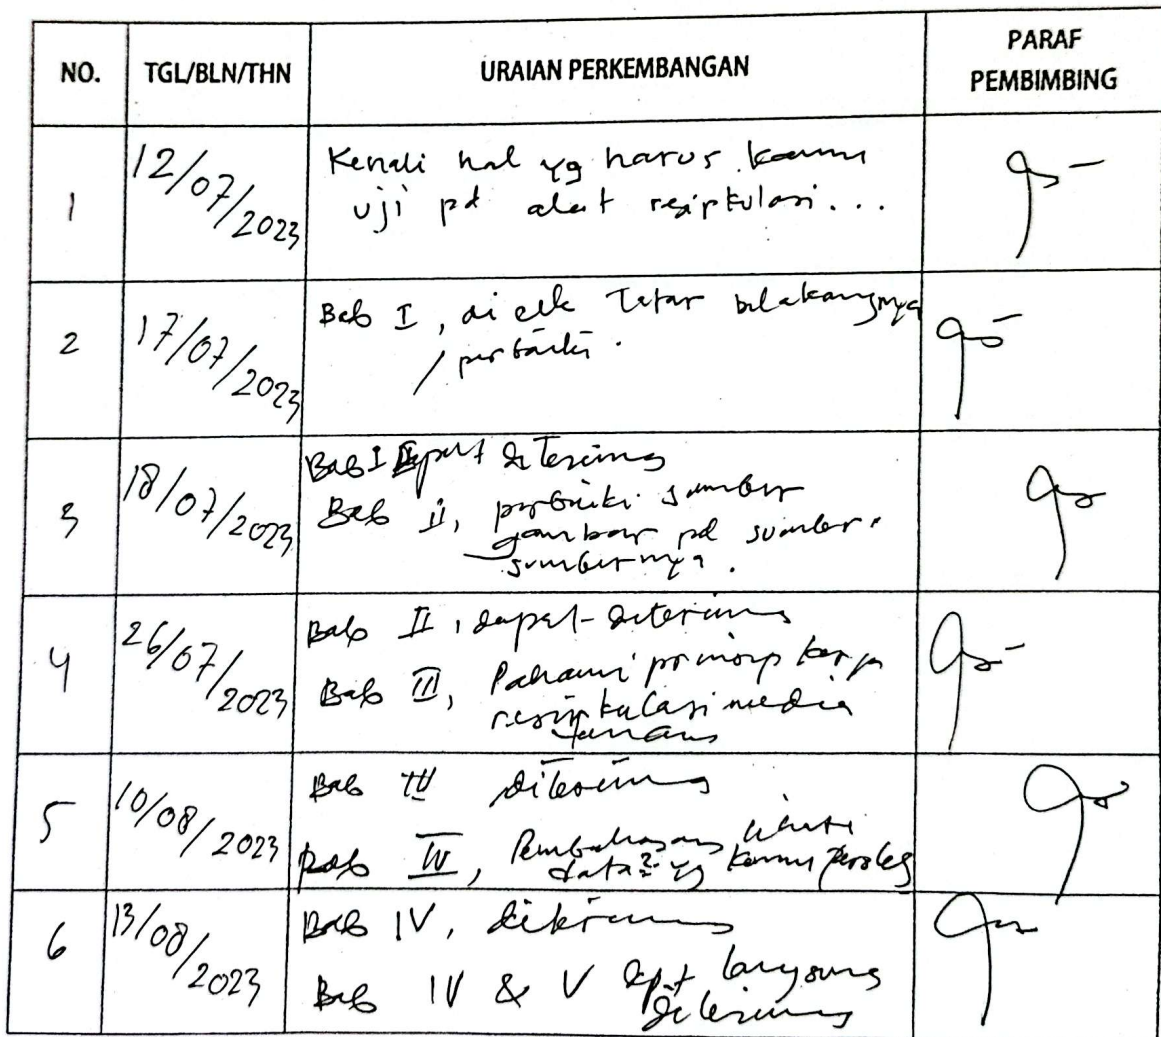 NO. TGL/BLN/THN URAIAN PERKEMBANGAN PARAF PEMBIMBING
1 12/07/2023 Kenali hal yg harus kamu
uji pd alat resirkulasi...
2 17/07/2023 Bab I, di cek latar belakangnya
/ perbaiki.
3 18/07/2023 Bab I dapat diterima
Bab II, perbaiki sumber
gambar pd sumber-
sumbernya.
4 26/07/2023 Bab II, dapat diterima
Bab III, Pahami prinsip kerja
resirkulasi media
5 10/08/2023 Bab III diterima
Bab IV, Pembahasan
data2 yg kamu peroleh
6 13/08/2023 Bab IV, diterima
Bab IV & V dpt langsung
diterima